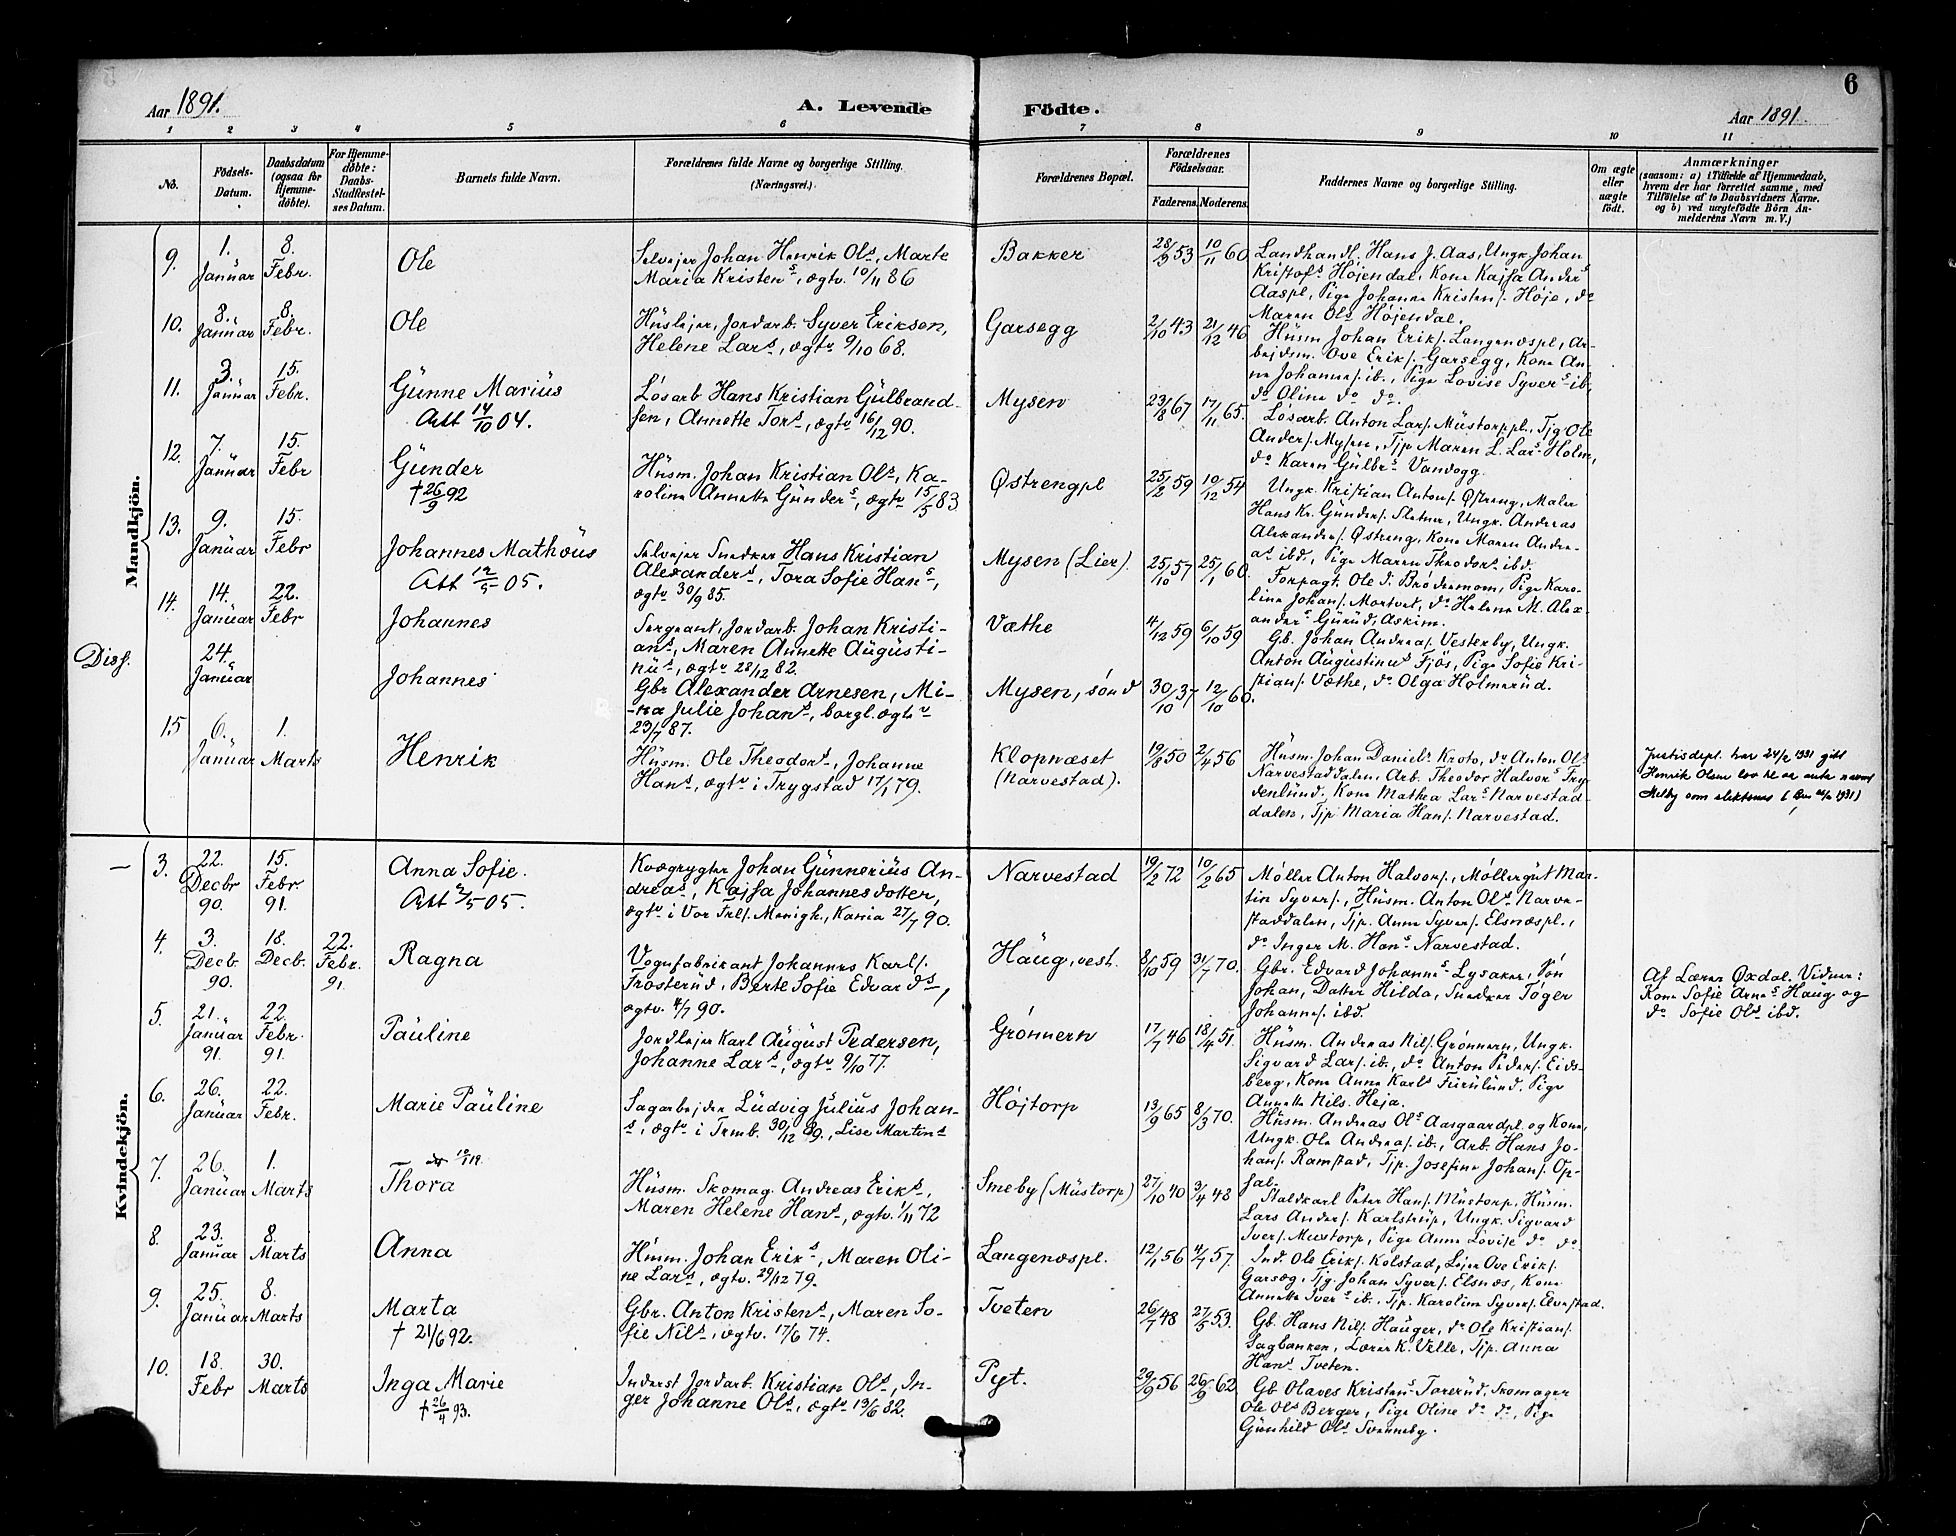 6
Aar 1891.
A. Levende
Födte.
Aar 1891
1 2 3 4 5 6 7 8 9 10 11
No.
Födsels-
Datum.
Daabsdatum
(ogsaa for
Hjemme-
döbte).
For Hjemme-
döbte:
Daabs-
Stadfæstel-
ses Datum.
Barnets fulde Navn.
Forældrenes fulde Navne og borgerlige Stilling.
(Næringsvei.)
Forældrenes Bopæl.
Forældrenes
Födselsaar.
Faderens.
Moderens.
Faddernes Navne og borgerlige Stilling.
Om ægte
eller
uægte
födt.
Anmærkninger
(saasom: a) i Tilfælde af Hjemmedaab,
hvem der har forrettet samme, med
Tilföielse af to Daabsvidners Navne.
og b) ved uægtefödte Börn An-
melderens Navn m. V.)
Mandkjön.
9.
1.
Januar
8.
Febr.
Ole
Selvejer Johan Henrik Ols, Marte
Maria Kristens, ægtv. 10/11 86
Bakker
28/2 53
10/11 60
Landhandl. Hans J. Aas, Ungk Johan
Kristofs Højendal, Kone Kajsa Anders
Aaspl, Pige Johanne Kristens. Høje, do
Maren Ols Højendal.
10.
8.
Januar
8.
Febr.
Ole
Huslejer, Jordarb. Syver Eriksen,
Helene Lars, ægtv 9/10 68.
Garsegg
2/10 43
21/12 46
Husm Johan Eriks. Langenæspl, Ar-
bejdsm. Ove Eriks. Garsegg, Kone An-
ne Johannes. ib., Pige Lovise Syvers ib,
do Oline do do.
11.
3.
Januar
15.
Febr.
Gunne Marius
Att 14/10 04.
Løsarb Hans Kristian Gulbrand-
sen, Annette Tors, ægtv 16/12 90.
Mysen
23/8 67
17/11 65.
Løsarb. Anton Lars. Mustorppl., Tjg Ole
Anders. Mysen, Tjp Maren L. Lars Holm,
do Karen Gulbrs Vandogg.
12.
7.
Januar
15.
Febr
Gunder
† 26/9 92
Husm. Johan Kristian Ols, Ka-
roline Annette Gunders, ægtv 15/5 83
Østrengpl
25/2 59
10/12 54
Ungk. Kristian Antons. Østreng, Maler
Hans Kr. Gunders. Sletner, Ungk. Andreas
Alexanders. Østreng, Kone Maren Andre-
as ibd, Pige Maren Theodors ibd.
13.
9.
Januar
15.
Febr
Johannes Mathæus
Att 12/5 05.
Selvejer Snedker Hans Kristian
Alexanders, Tora Sofie Hans,
ægtv 30/9 85.
Mysen (Lier).
25/10 57
25/1 60.
Forpagt. Ole J. Brødremoen, Pige Karo-
line Johans. Mortvet, do Helene M. Alex-
anders Gurud, Askim.
14.
14.
Januar
22.
Febr
Johannes
Sergeant, Jordarb. Johan Kristi-
ans, Maren Annette Augusti-
nus, ægtv 28/12 82.
Væthe
4/12 59
6/10 59
Gb. Johan Andreas. Vesterby, Ungk.
Anton Augustinus Fjøs, Pige Sofie Kri-
stians. Væthe, do Olga Holmerud.
Diss.
24.
Januar
Johannes
Gbr Alexander Arnesen, Mi-
na Julie Johans, borgl. ægtv
23/7 87.
Mysen, sønd
30/10 37
12/10 60.
15
6.
Januar
1.
Marts
Henrik
Husm. Ole Theodors, Johanne
Hans, ægtv i Trygstad 17/1 79.
Klopnæset
(Narvestad).
19/8 50
2/4 56
Husm. Johan Daniels Kroto, do Anton Ols
Narvestaddalen, Arb. Theodor Halvors Fry-
denlund, Kone Mathea Lars Narvestad-
dalen, Tjp Maria Hans. Narvestad.
Justisdept. har 24/2 1931 gitt
Henrik Olsen lov til at anta navnet
Melby som slektsnavn
Kvindekjön.
—
3.
22.
Decbr
90.
15.
Febr.
91.
Anna Sofie.
Att 2/5 05.
Kvægrygter Johan Gunnerius An-
dreas, Kajsa Johannesdotter,
ægtv i Vor Frls. Menigh., Kania 27/7 90.
Narvestad
19/2 72
10/2 65
Møller Anton Halvors., Møllergut Mar-
tin Syvers., Husm. Anton Ols. Narve-
staddalen, Tjp. Anne Syvers. Elsnæspl.,
do Inger M. Hans Narvestad.
4.
3.
Decb.
90.
18.
Decb.
22.
Febr.
91.
Ragna
Vognfabrikant Johannes Karls.
Trosterud, Berte Sofie Edvards,
ægtv. 4/7 90.
Haug, vest.
8/10 59
31/7 70.
Gbr. Edvard Johannes Lysaker, Søn
Johan, Datter Hilda, Snedker Tøger
Johannes. ibd.
Af Lærer Oxdal. Vidner:
Kone Sofie Arnes Haug og
do Sofie Ols ibd.
5.
21.
Januar
91.
22.
Febr.
91.
Pauline
Jordlejer Karl August Pedersen,
Johanne Lars, ægtv 9/10 77.
Grønnern
17/7 46
18/4 51.
Husm. Andreas Nils. Grønnern, Ungk.
Sigvard Lars. ib., do Anton Peders. Eids-
berg, Kone Anne Karls Furulund, Pige
Annette Nils. Heja.
6.
26.
Januar
22.
Febr.
Marie Pauline
Sagarbejder Ludvig Julius Johan-
s, ægtv i Trmb. 30/12 89., Lise Martins
Højtorp
13/9 65
8/3 70.
Husm. Andreas Ols Aasgaardpl. og Kone,
Ungk. Ole Andreas. ib., Arb. Hans Jo-
hans. Ramstad, Tjp. Josefine Johans. Op-
sal.
7.
26.
Januar
1.
Marts
Thora
Husm. Skomag. Andreas Eriks,
Maren Helene Hans, ægtv. 1/11 72
Smeby (Mustorp)
27/10 40
3/4 48
Staldkarl Peter Hans. Mustorp, Husm.
Lars Anders. Karlstrup, Ungk. Sigvard
Ivers. Mustorp, Pige Anna Lovise do do.
8.
23.
Januar
8.
Marts
Anna
Husm. Johan Eriks, Maren Oli-
ne Lars, ægtv. 29/12 79.
Langenæspl.
12/1 56
4/7 57.
Ind. Ole Eriks. Kolstad, Lejer Ove Eriks.
Garsæg, Tjg. Johan Syvers. Elsnæs, Kone
Annette Ivers ib., Tjp. Karoline Syvers. Elvestad.
9.
25.
Januar
8.
Marts
Marta
† 21/6 92.
Gbr. Anton Kristens, Maren So-
fie Nils, ægtv. 17/6 74.
Tveten
26/7 48
27/5 53.
Gb. Hans Nils. Hauger, do Ole Kristians.
Sagbanken, Lærer K. Velle, Tjp. Anna
Hans Tveten.
10.
18.
Febr
30.
Marts
Inga Marie
† 26/4 93.
Inderst Jordarb. Kristian Ols, In-
ger Johanne Ols, ægtv 13/6 82.
Pyt.
29/9 56
26/9 62
Gb Olaves Kristens Torerud, Skomager
Ole Ols Berger, Pige Oline do do, Pige
Gunhild Ols Svenneby.